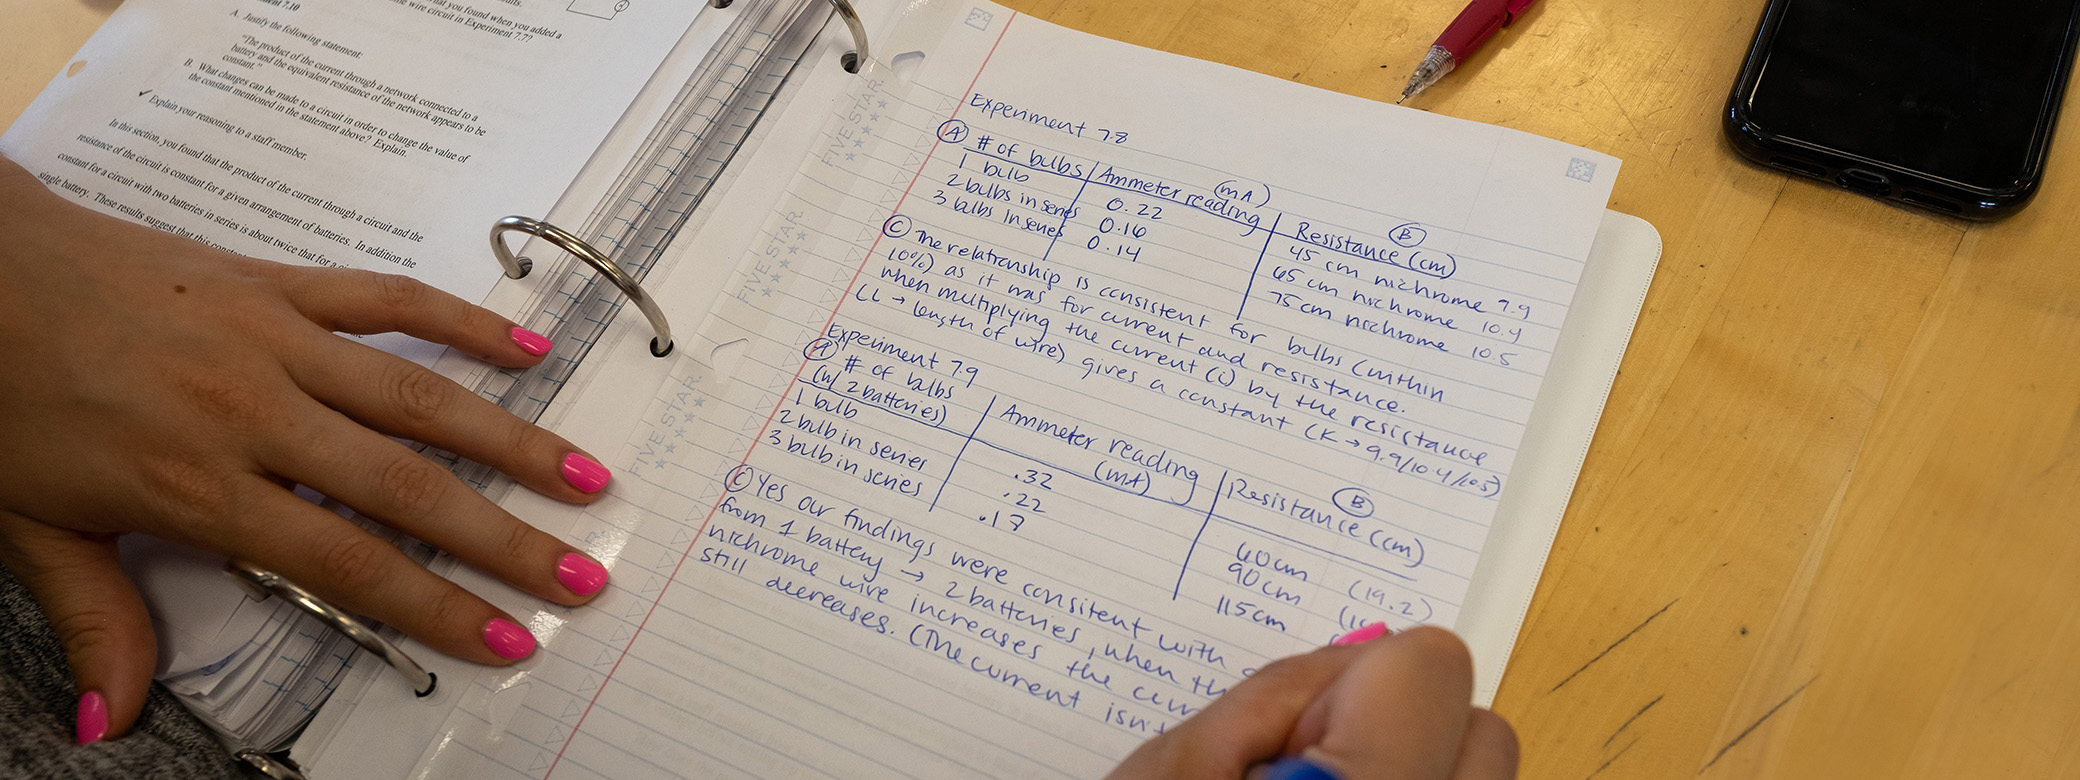 that you found when you added a
wire circuit in Experiment 7.7?
7.10
A. Justify the following statement:
"The product of the current through a network connected to a
battery and the equivalent resistance of the network appears to be
constant."
B. What changes can be made to a circuit in order to change the value of
the constant mentioned in the statement above? Explain.
✓ Explain your reasoning to a staff member.
In this section, you found that the product of the current through a circuit and the
resistance of the circuit is constant for a given arrangement of batteries. In addition the
constant for a circuit with two batteries in series is about twice that for a
single battery. These results suggest that this
FIVE STAR.
FIVE STAR.
FIVE STAR.
Experiment 7.8
A # of bulbs Ammeter reading (mA) Resistance (cm) B
1 bulb 0.22 45 cm nichrome 9.9
2 bulbs in series 0.16 65 cm nichrome 10.4
3 bulbs in series 0.14 75 cm nichrome 10.5
C The relationship is consistent for bulbs (within
10%) as it was for current and resistance.
when multiplying the current (i) by the resistance
(L → length of wire) gives a constant (K → 9.9/10.4/10.5)
Experiment 7.9
A # of bulbs
(w/ 2 batteries) Ammeter reading (mA) Resistance (cm) B
1 bulb .32 60cm (19.2)
2 bulb in series .22 90cm
3 bulb in series .17 115cm
C Yes our findings were consitent with
from 1 battery → 2 batteries, when th
nichrome wire increases the curr
still decreases. (The current isn't